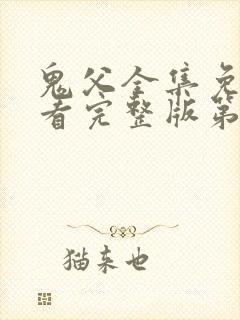 鬼父全集免
看完整版第
猫来也